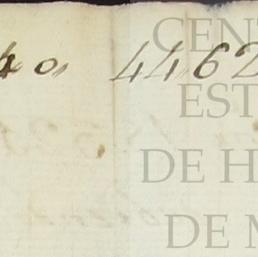 40, 44,62
CENT
EST
DE H
DE M